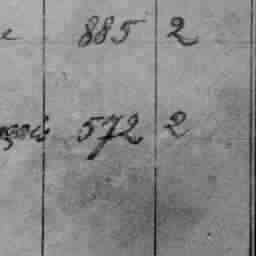 885 2
572 2